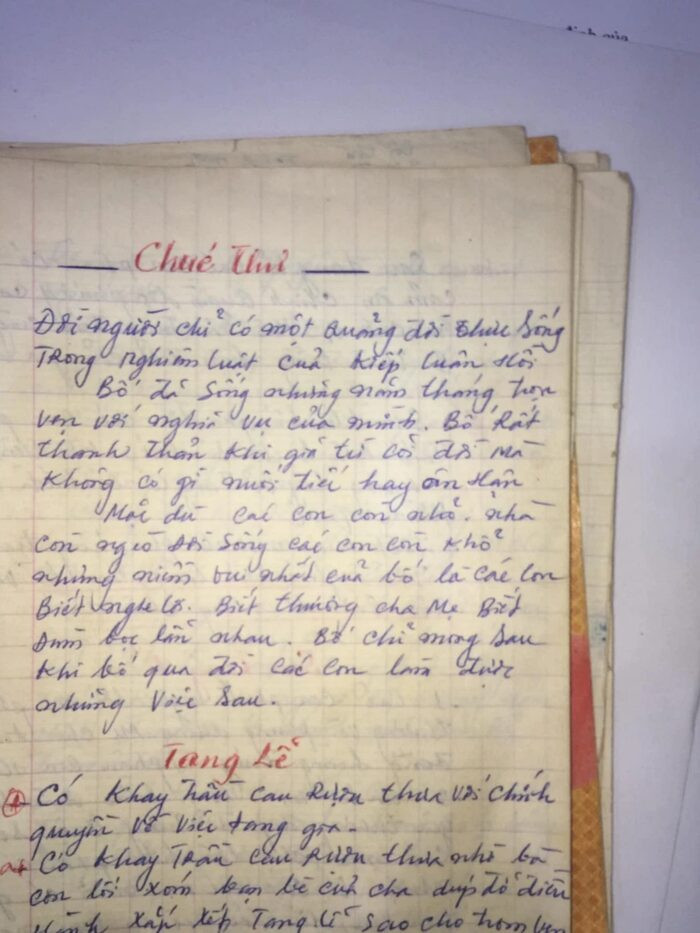 định của
Chúc Thư
Đời người chỉ có một quảng đời được Sống
Trong nghiêm luật của Kiếp luân Hồi
Bố Đã Sống những năm tháng trọn
vẹn với nghĩa vụ của mình. Bố Rất
thanh Thản Khi giã từ cỏi đời Mà
Không có gì nuối tiếc hay ân Hận
Mặc dù các con còn nhỏ. nhà
còn nghèo đời Sống các con còn Khổ
nhưng niềm vui nhất của bố là các con
Biết nghe lời. Biết thương cha Mẹ Biết
Đùm bọc lẫn nhau. Bố chỉ mong Sau
Khi bố qua đời các con làm được
những Việc Sau.
Tang Lễ
Có Khay Trầu cau Rượu thưa với chính
quyền về việc tang gia.
Có Khay Trầu cau Rượu thưa nhờ bà
con lối xóm bạn bè của cha dúp đỡ điều
hành xắp xếp Tang lễ sao cho trọn vẹn